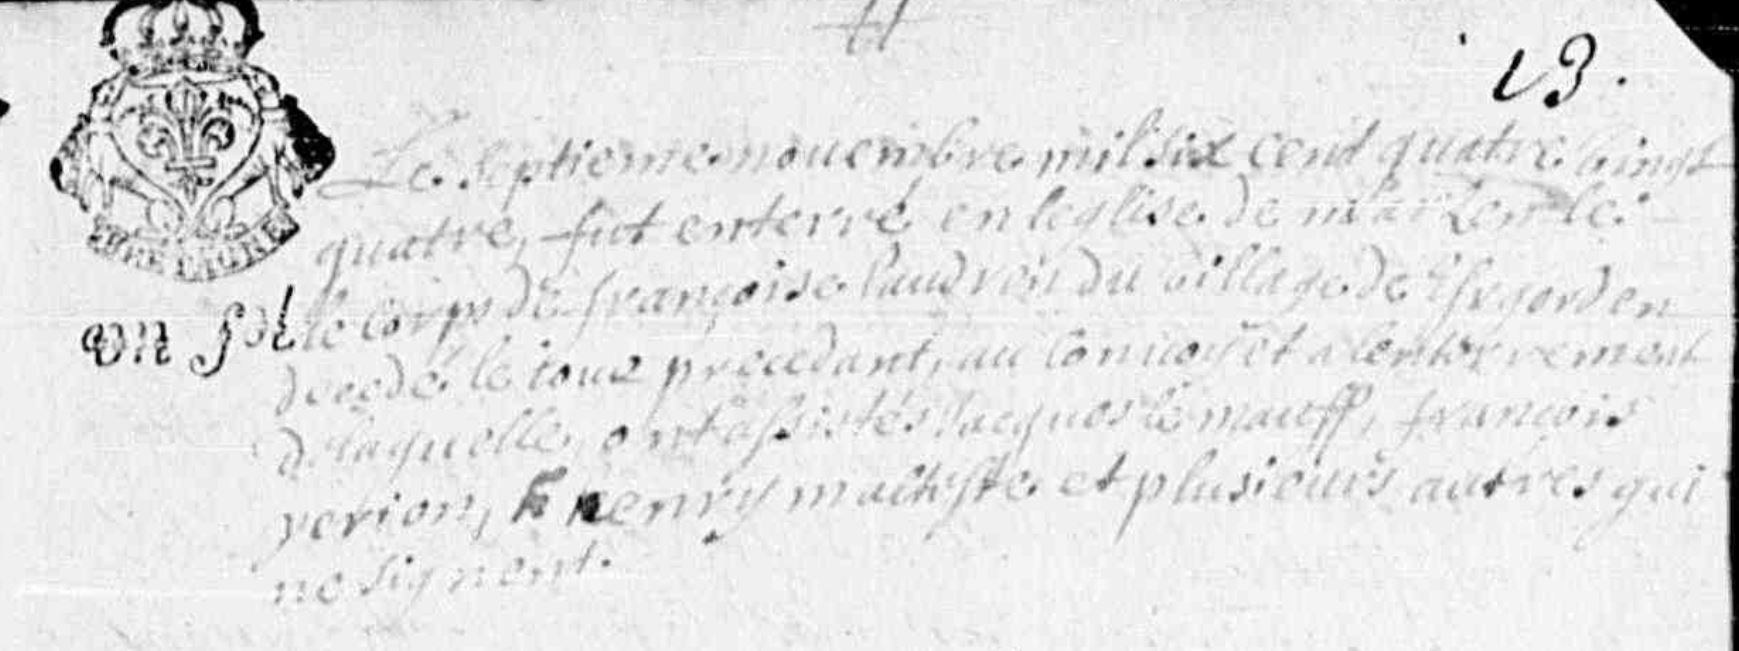 13.
Le septiemenouembre mil six cend quatre vingt
quatre, fut enterré en leglise de
le corps de françoise laudren du village de
decede le iour precedant, au conuoy et a lenterrement
de laquelle, ont assistés Jacques le mauff, françois
yvrion, henry et plusieurs autres qui
ne signent.
un sol